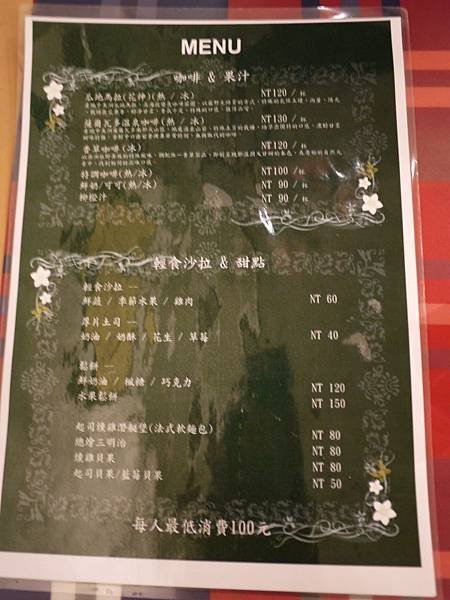 MENU
咖啡 & 果汁
瓜地馬拉(花神)(熱 / 冰) NT120 /杯
薩爾瓦多溫泉咖啡(熱 / 冰) NT130 /杯
香草咖啡(熱/冰) NT120 /杯
特調咖啡(熱/冰) NT100 /杯
鮮奶/可可(熱/冰) NT 90 /杯
柳橙汁 NT 90 /杯
輕食沙拉 & 甜點
輕食沙拉 --
鮮蔬 / 季節水果 / 雞肉 NT 60
厚片土司 --
奶油 / 奶酥 / 花生 / 草莓 NT 40
鬆餅 --
鮮奶油 / 楓糖 / 巧克力 NT 120
水果鬆餅 NT 150
起司燻雞潛艇堡(法式軟麵包) NT 80
總燴三明治 NT 80
燻雞貝果 NT 80
起司貝果/藍莓貝果 NT 50
每人最低消費100元